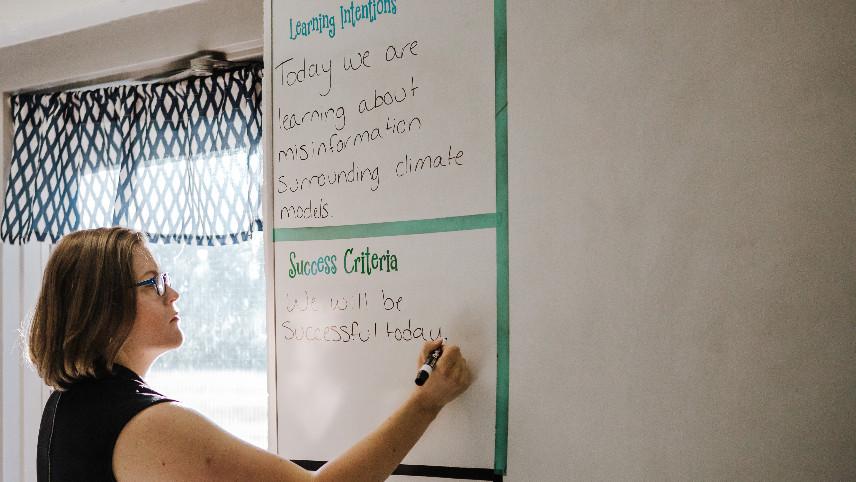 Learning Intentions
Today we are
learning about
misinformation
surrounding climate
models.
Success Criteria
We will be
Successful today.